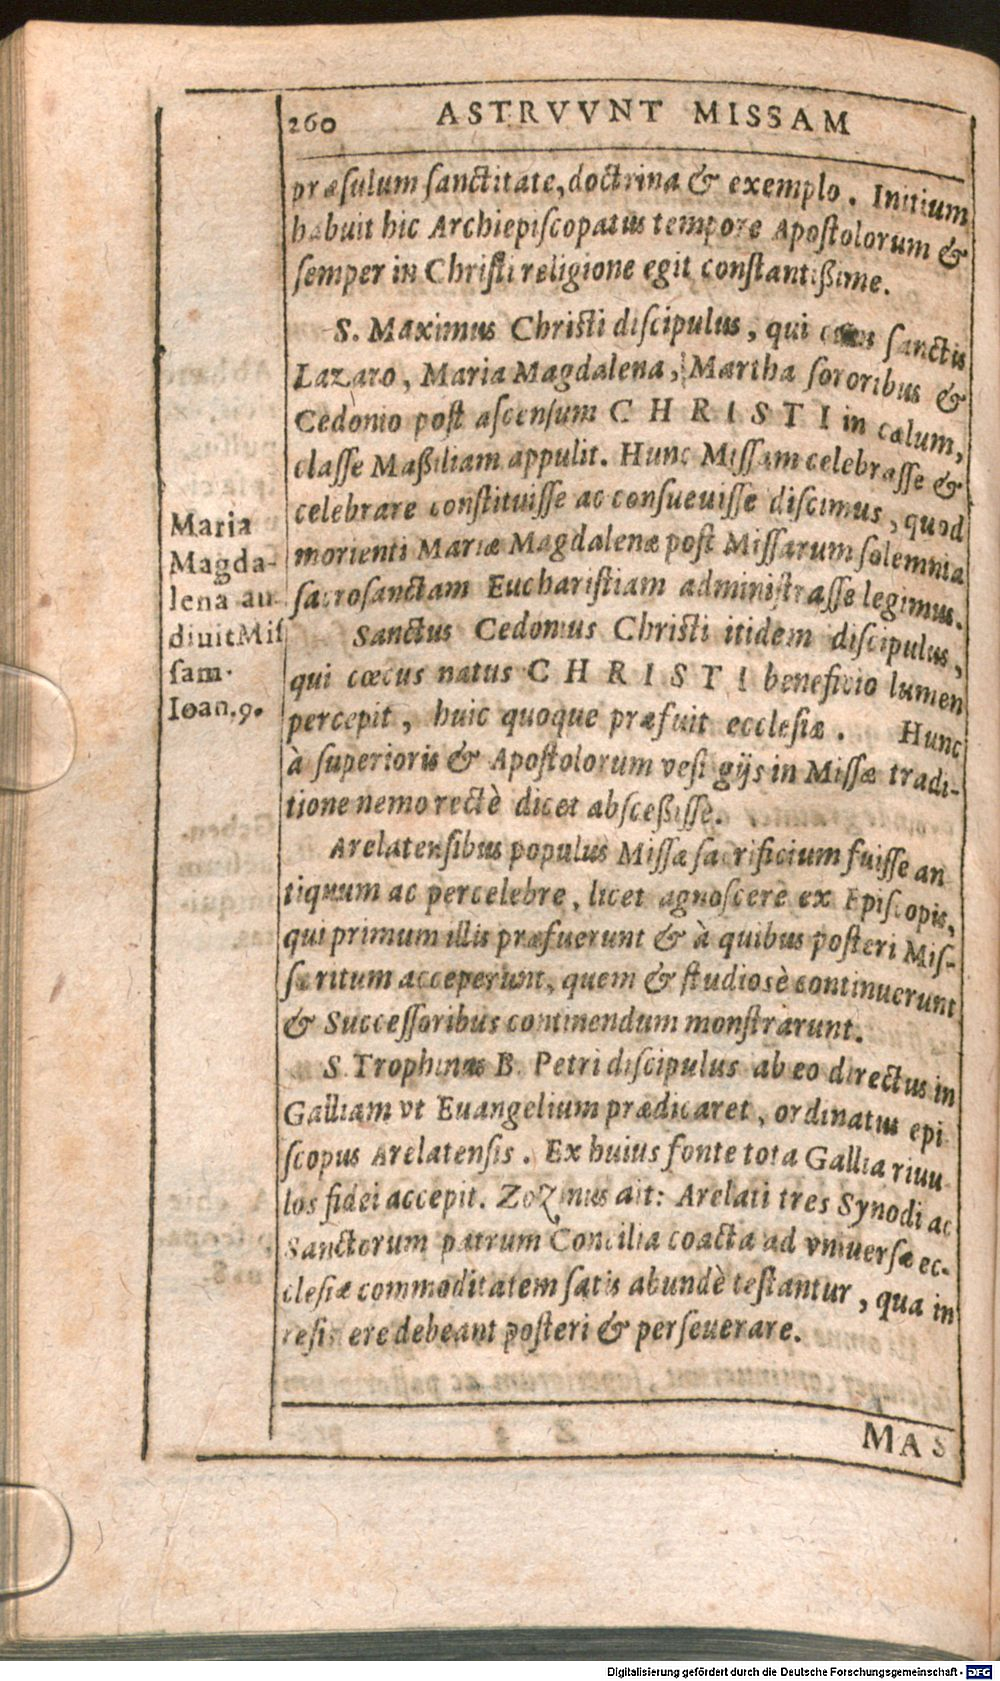 260 ASTRVVNT MISSAM
præſulum ſanctitate, doctrina & exemplo. Initium
habuit hic Archiepiſcopatus tempore Apoſtolorum &
ſemper in Chriſti religione egit conſtantißime.
S. Maximus Chriſti diſcipulus, qui ſanctis
Lazaro, Maria Magdalena, Martha ſororibus &
Cedonio poſt aſcenſum CHRISTI in cælum,
claſſe Maßiliam appulit. Hunc Miſſam celebraſſe &
celebrare conſtituiſſe ac conſueuiſſe diſcimus, quod
morienti Mariæ Magdalenæ poſt Miſſarum ſolemnia
ſacroſanctam Euchariſtiam adminiſtraſſe legimus.
Maria
Magda-
lena au-
diuit Miſ
ſam.
Ioan. 9.
Sanctus Cedonius Chriſti itidem diſcipulus,
qui cœcus natus CHRISTI beneficio lumen
percepit, huic quoque præfuit eccleſiæ. Hunc
à ſuperioris & Apoſtolorum veſtigijs in Miſſæ tradi-
tione nemo rectè dicet abſceßiſſe.
Arelatenſibus populus Miſſæ ſacrificium fuiſſe an
tiquum ac percelebre, licet agnoſcere ex Epiſcopis,
qui primum illis præfuerunt & à quibus poſteri Miſ-
ſæ ritum acceperunt, quem & ſtudiosè continuerunt
& Succeſſoribus continendum monſtrarunt.
S. Trophimus B. Petri diſcipulus ab eo directus in
Galliam vt Euangelium prædicaret, ordinatus epi
ſcopus Arelatenſis. Ex huius fonte tota Gallia riuu
los fidei accepit. Zozimus ait: Arelati tres Synodi ac
Sanctorum patrum Concilia coacta ad vniuerſæ ec-
cleſiæ commoditatem ſatis abundè teſtantur, qua in
re ſiſtere debeant poſteri & perſeuerare.
MAS
Digitalisierung gefördert durch die Deutsche Forschungsgemeinschaft - DFG